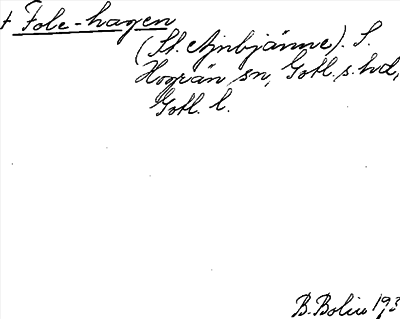 † Fole-hagen
(St. Ajnbjänne). S.
Hogrän sn, Gotl. s. hd,
Gotl. l.
B. Bolin 193